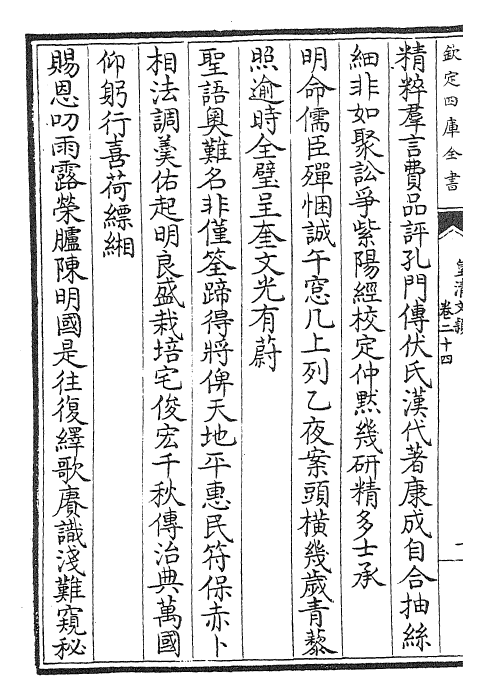 欽定四庫全書
卷二十四
精粹羣言費品評孔門傳伏氏漢代著康成自合抽絲
細非如聚訟爭紫陽經校定仲黙幾研精多士承
明命儒臣殫悃誠午窓几上列乙夜案頭橫幾歲青藜
照逾時全璧呈奎文光有蔚
聖語奥難名非僅筌蹄得將俾天地平惠民符保赤卜
相法調羮佑起明良盛栽培宅俊宏千秋傳治典萬國
仰躬行喜荷縹緗
賜恩叨雨露榮臚陳明國是往復繹歌賡識淺難窺秘